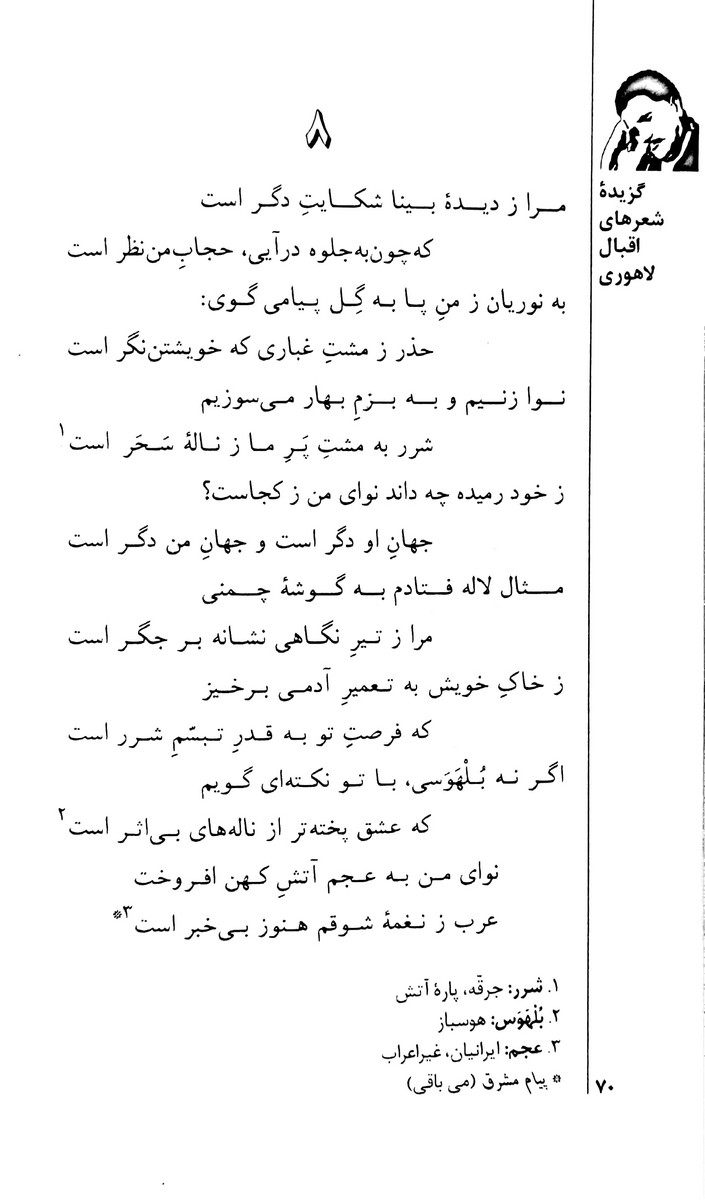 ۸
مرا ز دیدهٔ بینا شکایتِ دگر است
که‌چون‌به‌جلوه درآیی، حجابِ‌من‌نظر است
به نوریان ز منِ پا به گِل پیامی گوی:
حذر ز مشتِ غباری که خویشتن‌نگر است
نوا زنیم و به بزمِ بهار می‌سوزیم
شرر به مشتِ پَرِ ما ز نالهٔ سَحَر است۱
ز خود رمیده چه داند نوای من ز کجاست؟
جهانِ او دگر است و جهانِ من دگر است
مثال لاله فتادم به گوشهٔ چمنی
مرا ز تیرِ نگاهی نشانه بر جگر است
ز خاکِ خویش به تعمیرِ آدمی برخیز
که فرصتِ تو به قدرِ تبسّمِ شرر است
اگر نه بُلْهَوَسی، با تو نکته‌ای گویم
که عشق پخته‌تر از ناله‌های بی‌اثر است۲
نوای من به عجم آتشِ کهن افروخت
عرب ز نغمهٔ شوقم هنوز بی‌خبر است۳*
۱. شرر: جرقّه، پارهٔ آتش
۲. بُلْهَوَس: هوسباز
۳. عجم: ایرانیان، غیراعراب
* پیام مشرق (می باقی)
گزیدهٔ
شعرهای
اقبال
لاهوری
۷۰